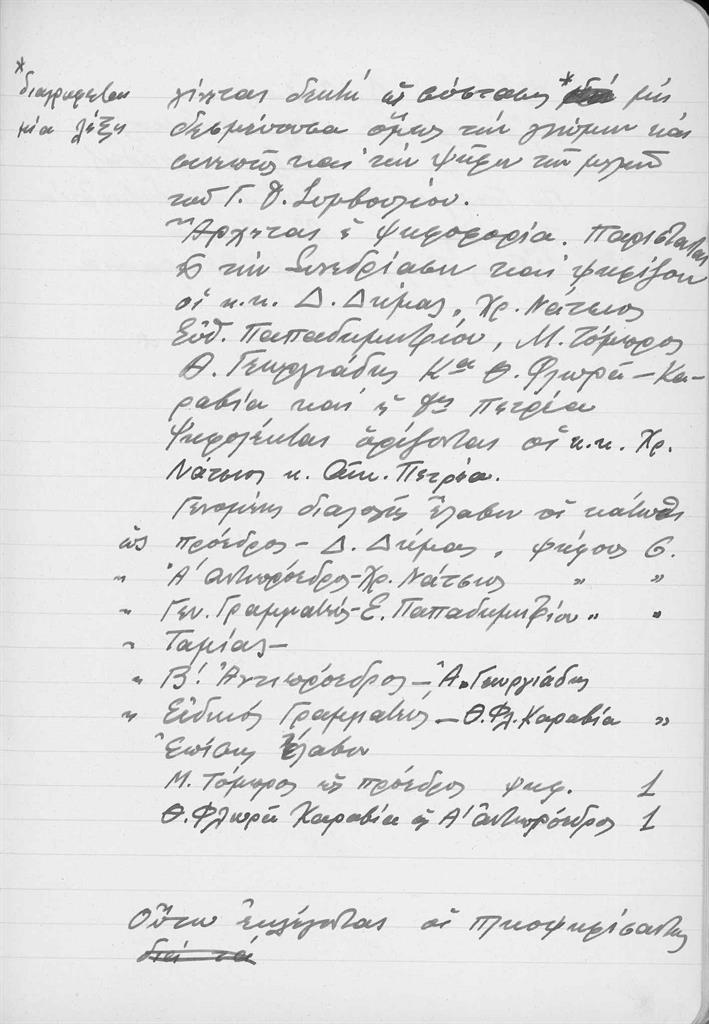 *
διαγράφεται
μία λέξη
γίνεται δεκτή ὡς σύστασις * μὴ
δεσμεύουσα ὅμως τὴν γνώμην καὶ
συνεπῶς καὶ τὴν ψῆφον τῶν μελῶν
τοῦ Γ. Δ. Συμβουλίου.
Ἄρχεται ἡ ψηφοφορία. Παρίστανται
τὴν Συνεδρίασιν καὶ ψηφίζουν
οἱ κ.κ. Δ. Δήμας, Χρ. Νάτσιος
Εὐθ. Παπαδημητρίου, Μ. Τόμπρος
Θ. Γεωργιάδης Κα Θ. Φλωρᾶ – Κα-
ραβία καὶ ἡ Δις Πετρέα
Ψηφολέκται ὁρίζονται οἱ κ.κ. Χρ.
Νάτσιος κ. Αἰκ. Πετρέα.
Γενομένης διαλογῆς ἔλαβον οἱ κάτωθι
ὡς πρόεδρος – Δ. Δήμας, ψήφους 6.
" Α' Αντιπρόεδρος – Χρ. Νάτσιος " "
" Γεν. Γραμματεύς – Ε. Παπαδημητρίου " "
" Ταμίας –
" Β'. Ἀντιπρόεδρος – Γεωργιάδης
" Εἰδικὸς Γραμματεύς – Θ. Φλ. Καραβία "
Ἐπίσης ἔλαβον
Μ. Τόμπρος ὡς πρόεδρος ψηφ. 1
Θ. Φλωρᾶ Καραβία ὡς Α' ἀντιπρόεδρος 1
Οὕτω ἐκλέγονται οἱ πλειοψηφίσαντες
διὰ τὰ